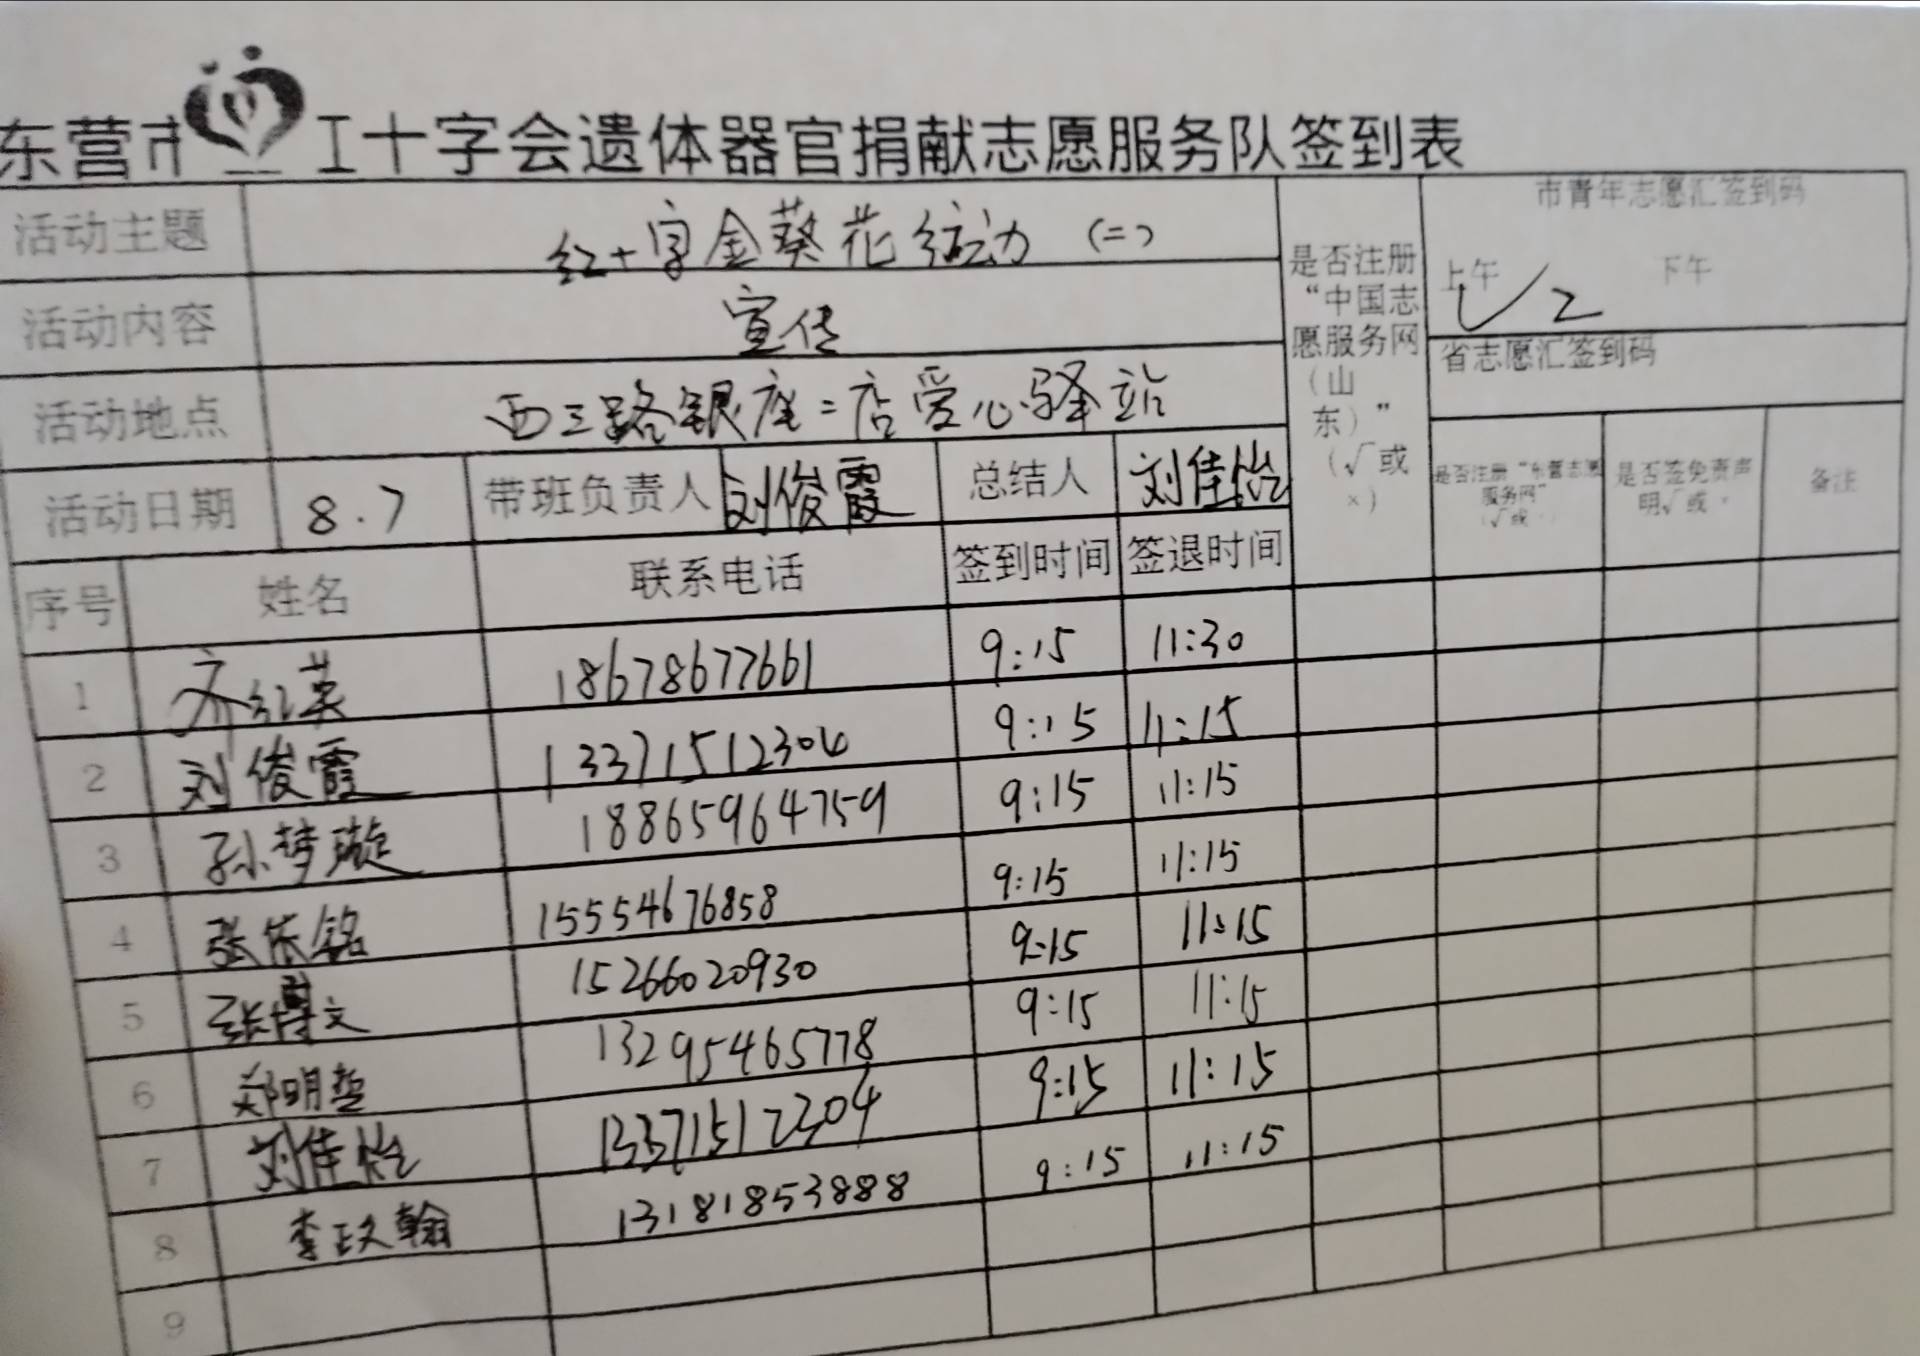 东营市红十字会遗体器官捐献志愿服务队签到表
活动主题 红十字金葵花行动 (二)
活动内容 宣传
活动地点 西三路银座二店爱心驿站
活动日期 8.7 带班负责人 刘俊霞 总结人 刘佳怡
是否注册“中国志愿服务网（山东）”（√或×）
市青年志愿汇签到码
上午 下午
省志愿汇签到码
是否注册“东营志愿服务网” 是否签免责声明√或 备注
序号 姓名 联系电话 签到时间 签退时间
1 齐红英 18678677661 9:15 11:30
2 刘俊霞 13371512304 9:15 11:15
3 孙梦璇 18865964759 9:15 11:15
4 张依铭 15554676858 9:15 11:15
5 张博文 15266020930 9:15 11:15
6 郑明哲 13295465778 9:15 11:15
7 刘佳怡 13371512304 9:15 11:15
8 李玟翰 13181853888 9:15 11:15
9